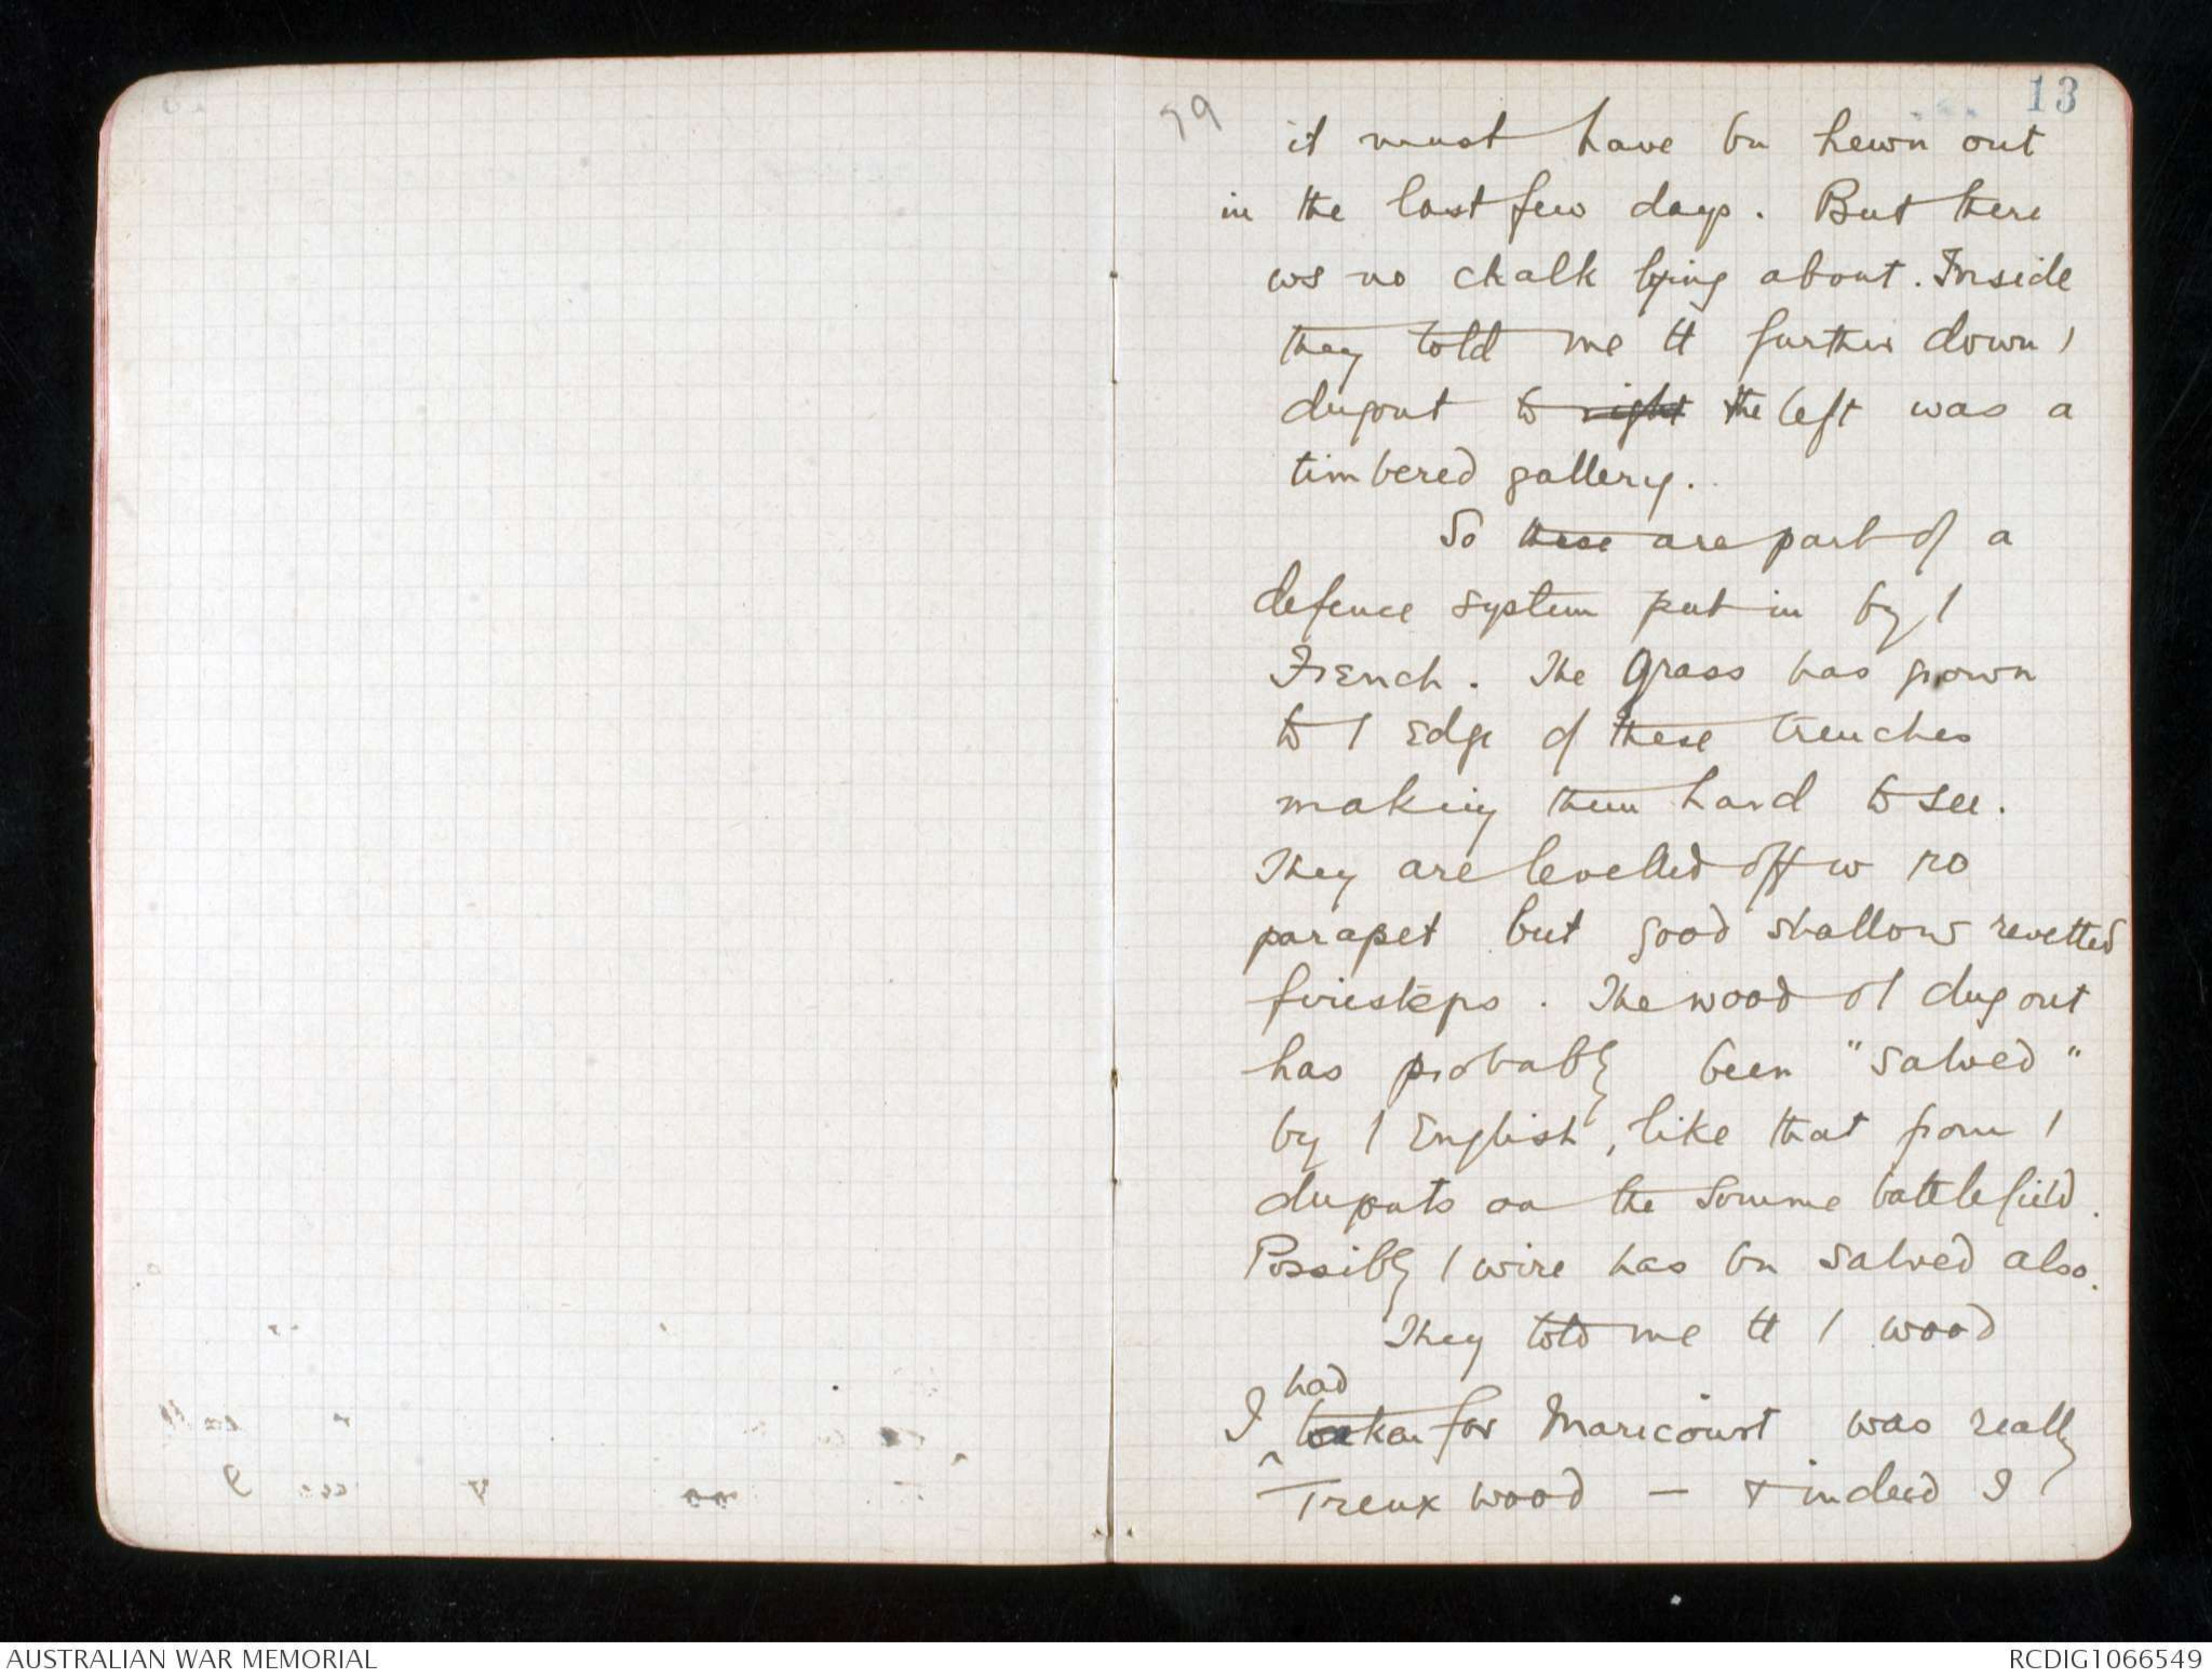 13
79
it must have bn hewn out
in the last few days. But there
ws no chalk lying about. Inside
they told me tt further down /
dugout to right the left was a
timbered gallery.
So these are part of a
defence system put in by /
French. The grass has grown
to / edge of these trenches
making them hard to see.
They are levelled off w no
parapet but good shallow revetted
firesteps. The wood o/ dugout
has probably been "salved"
by / English, like that from /
dugouts on the Somme battlefield.
Possibly / wire has bn salved also.
They told me tt / wood
had
I ^ taken for Maricourt was really
Treux wood — & indeed I
AUSTRALIAN WAR MEMORIAL
RCDIG1066549